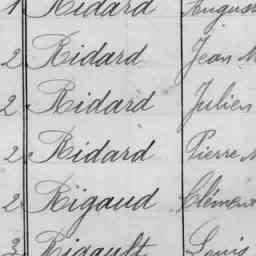 1 Ridard
2 Ridard Jean
2 Ridard Julien
2 Ridard Pierre
2 Rigaud Clément
3 Rigault Louis